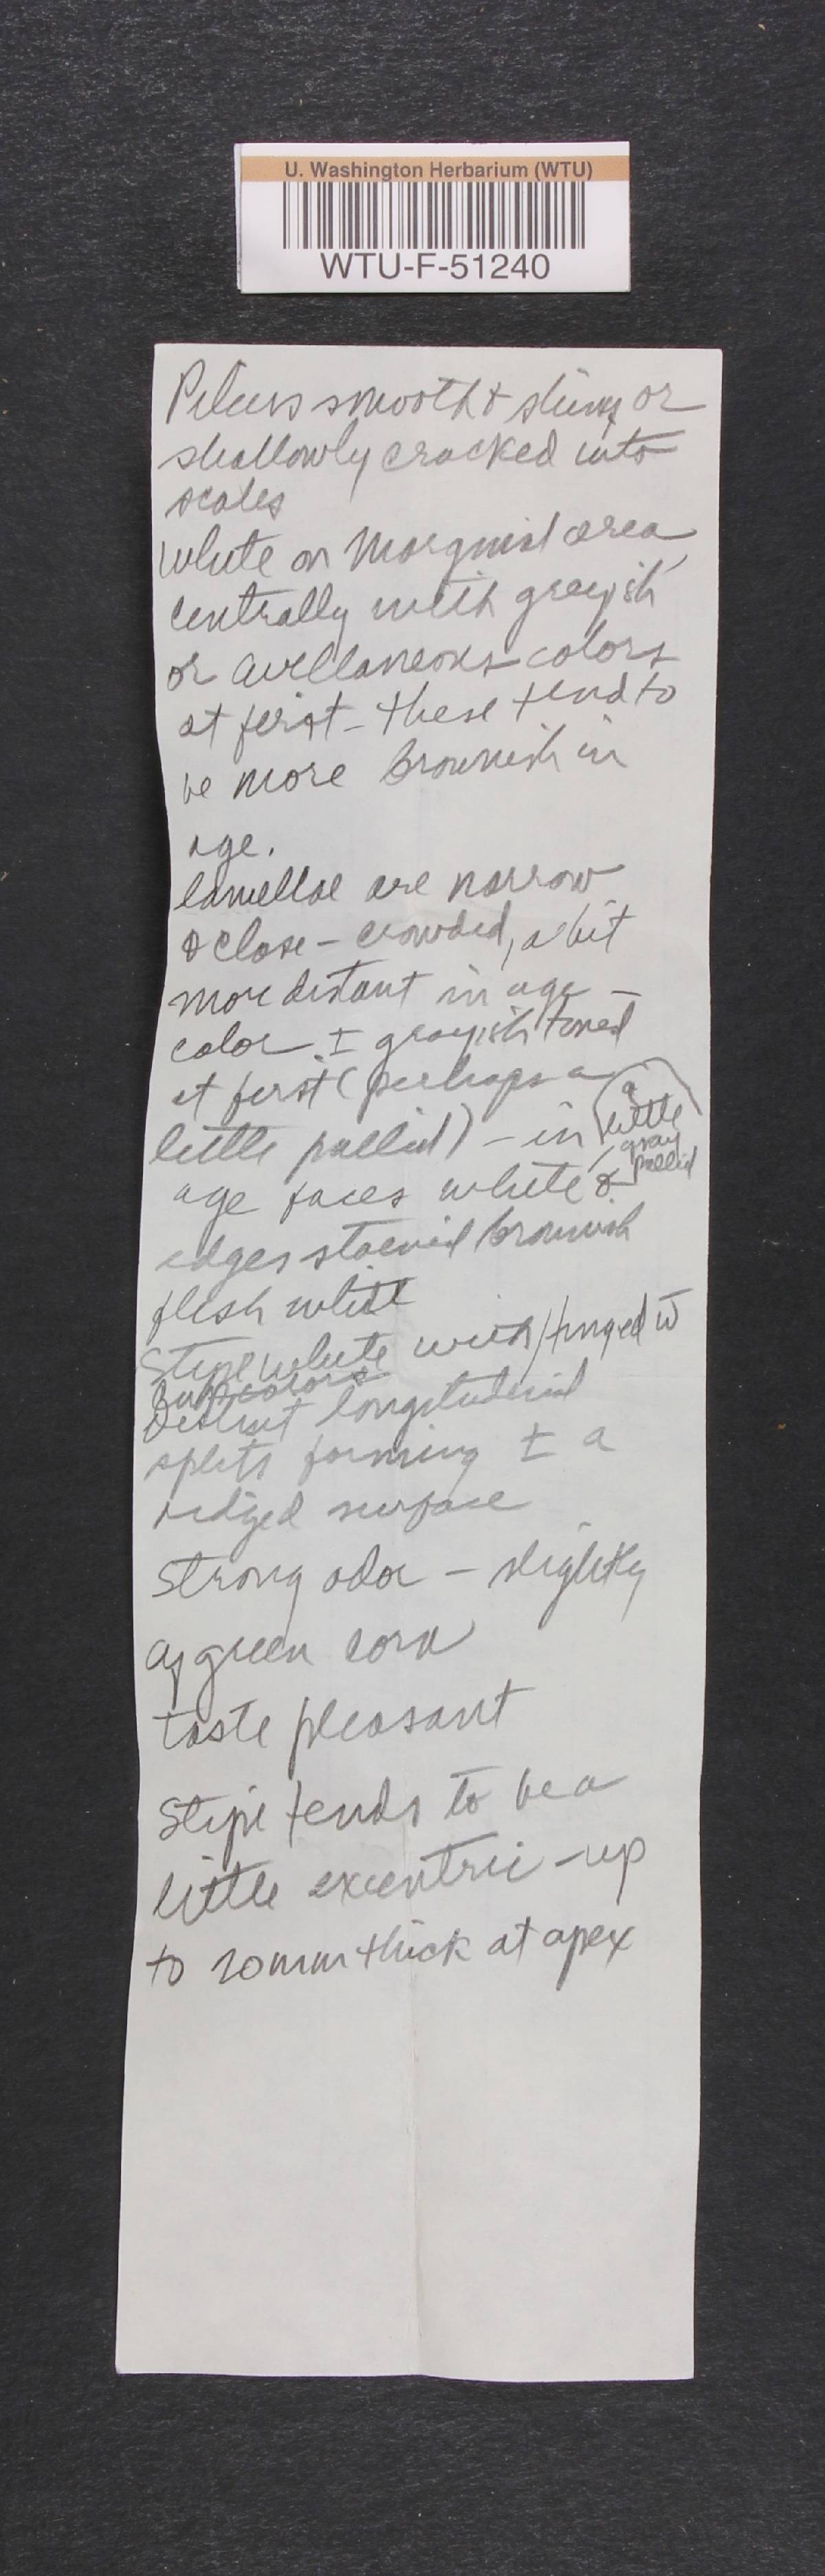 U. Washington Herbarium (WTU)
WTU-F-51240
Pileus smooth & shiny or
shallowly cracked into
scales
White on marginal area,
centrally with grayish
or avellaneous colors
at first - these tend to
be more brownish in
age.
lamellae are narrow
& close - crowded, a bit
more distant in age -
color ± grayish toned
at first (perhaps a
little pallid) - in
a little gray pallid
age faces white &
edges stained brownish
flesh white
Stipe white with / tinged w̄
buff colors
distinct longitudinal
splits forming ± a
ridged surface
Strong odor - slightly
of green corn
taste pleasant
Stipe tends to be a
little excentric - up
to 20mm thick at apex